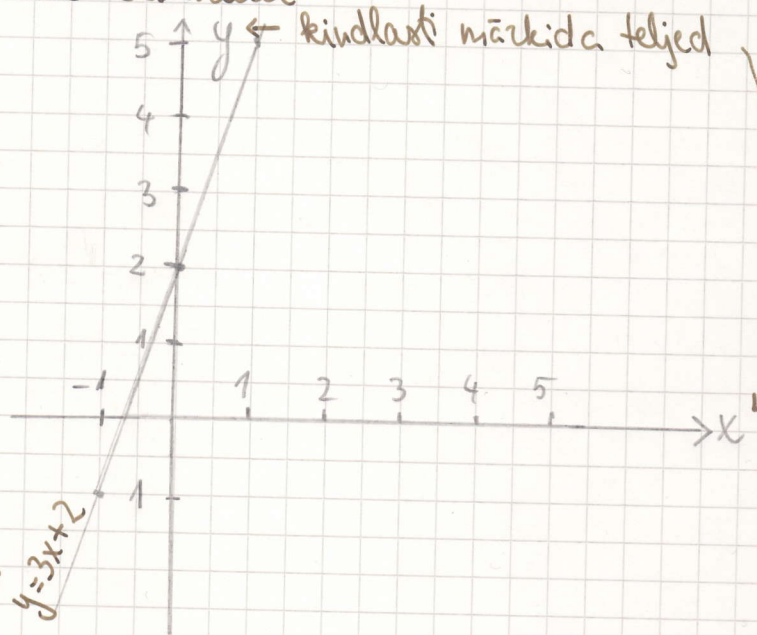 y ← kindlasti märkida teljed
5
4
3
2
1
-1 1 2 3 4 5
x
1
y=3x+2